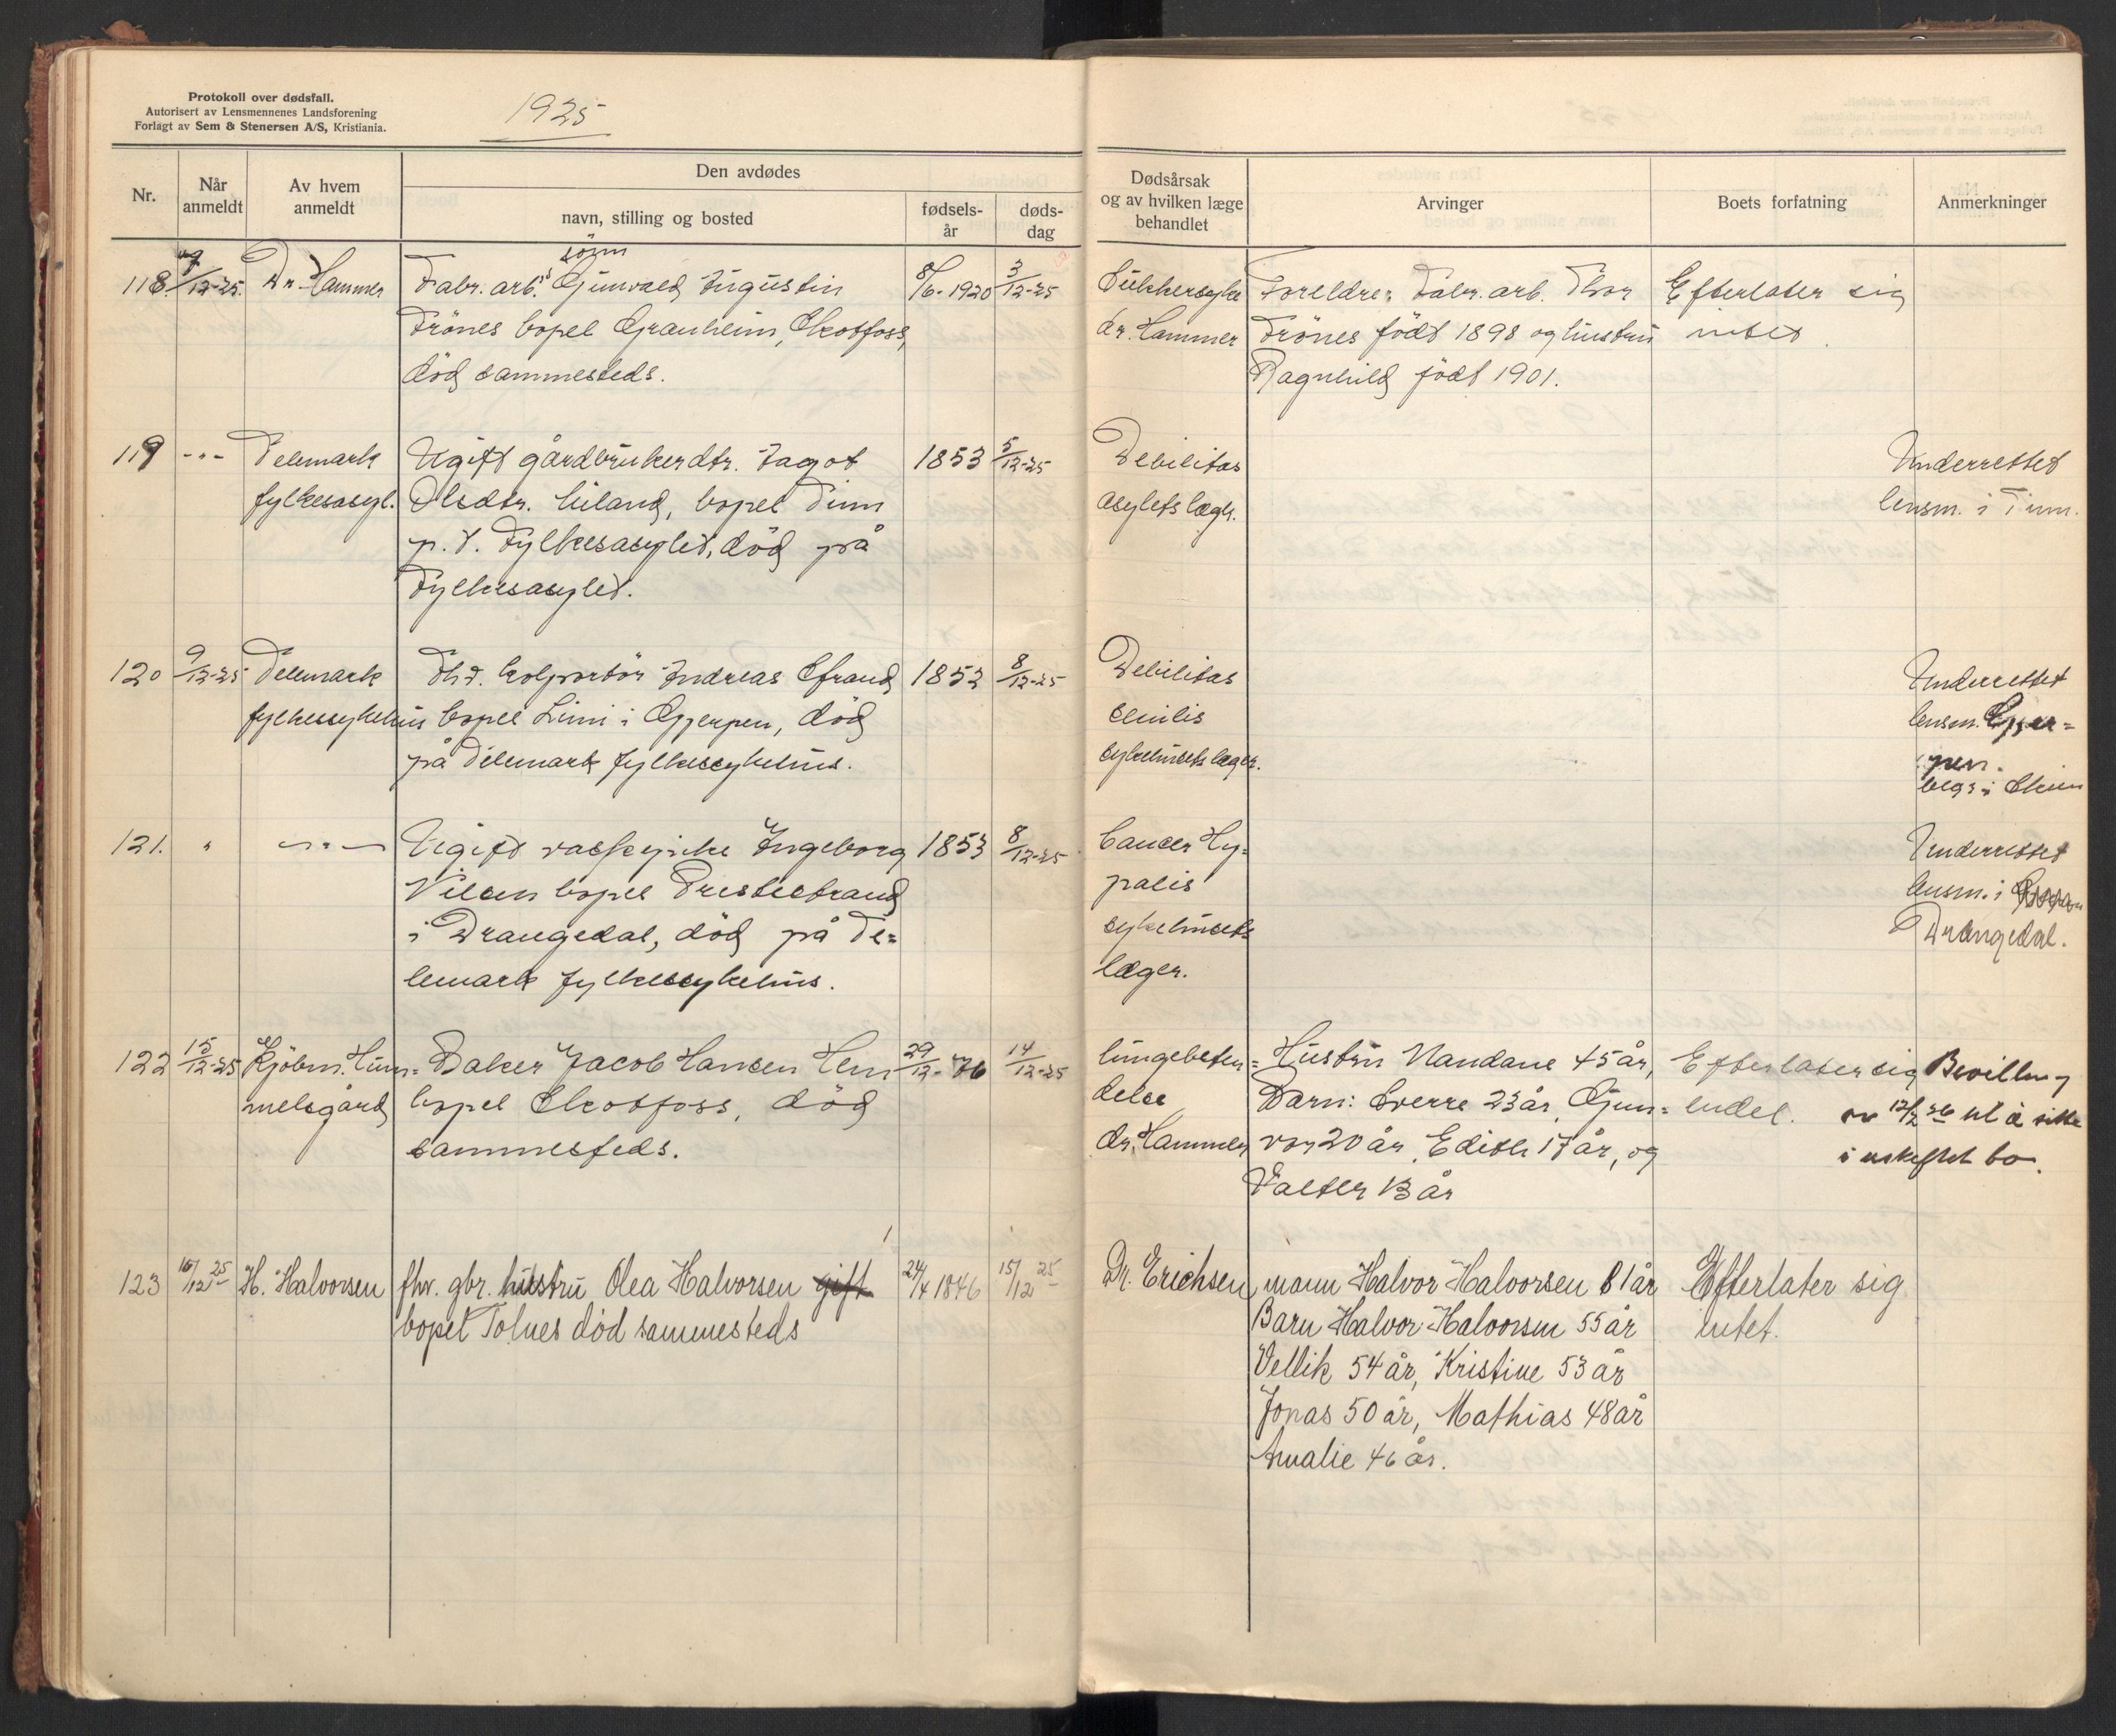 Protokoll over dødsfall.
Autorisert av Lensmennenes Landsforening
Forlagt av Sem & Stenersen A/S, Kristiania.
1925
Nr.
Når anmeldt
Av hvem anmeldt
Den avdødes
navn, stilling og bosted
fødsels-år
døds-dag
Dødsårsak og av hvilken læge behandlet
Arvinger
Boets forfatning
Anmerkninger
118. 7/12-25. Dr. Hammer
sönn
Fabr. arb.s Gunvald Augustin
Trönes bopel Granheim, Skotfoss,
död sammesteds.
8/6-1920 3/12-25
Sukkersyke
dr. Hammer
Foreldre: Fabr. arb. Thor
Trönes födt 1898 og hustru
Ragnhild födt 1901.
Efterlater sig
intet.
119 -"- Telemark
fylkesasyl.
Ugift gårdbrukerdtr. Aagot
Olsdtr. Luland, bopel Tinn
p. t. Fylkesasylet, död på
Fylkesasylet.
1853 5/12-25
Debilitas
asylets læge.
Underrettet
lensm. i Tinn.
120 9/12-25 Telemark
fylkessykehus
Fhv. kolportör Andreas Strand
bopel Limi i Gjerpen, död
på Telemark fylkessykehus.
1852 8/12-25
Debilitas
senilis
sykehusets læger.
Underrettet
lensm. Gjer=
pen.
begr. i Skien
121. " -"-
Ugift vaskepike Ingeborg
Nilsen bopel Prestestrand
i Drangedal, död på Te=
lemark fylkessykehus.
1853 8/12-25
Cancer Hy=
palis
sykehusets
læger.
Underrettet
lensm. i
Drangedal.
122 15/12-25 Kjöbm. Hum=
melgård
Baker Jacob Hansen Hem
bopel Skotfoss, död
sammesteds.
29/12-76 14/12-25
lungebeten=
delse
dr. Hammer
Hustru Nandane 45 år,
Barn: Sverre 23 år, Gun=
vor 20 år, Edith 17 år, og
Valter 13 år
Efterlater sig
endel.
Bevilling
av 12/2 26 til å sitte
i uskiftet bo.
123 16/12 25 H. Halvorsen
fhv. gbr. hustru Olea Halvorsen gift
bopel Tolnes död sammesteds
24/4 1846 15/12 25
Dr. Erichsen
mann Halvor Halvorsen 81 år
Barn Halvor Halvorsen 55 år
Vellik 54 år, Kristine 53 år
Jonas 50 år, Mathias 48 år
Amalie 46 år.
Efterlater sig
intet.